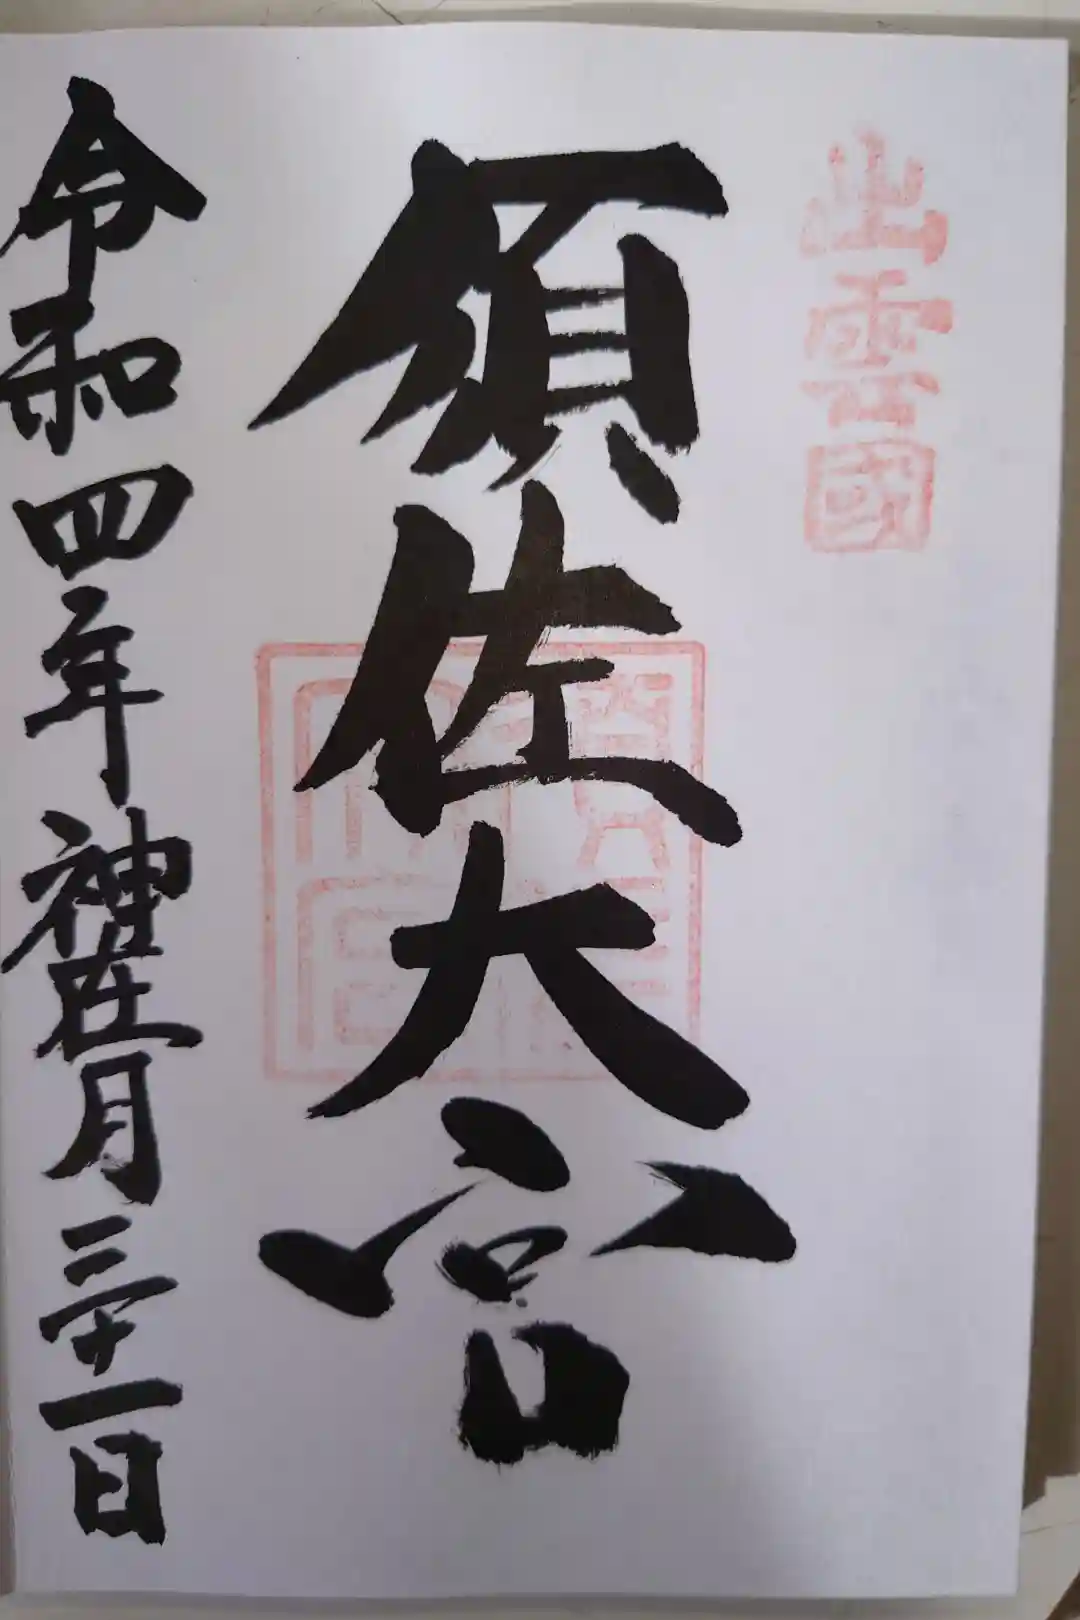 出雲國
須佐大宮
令和四年神在月三十一日